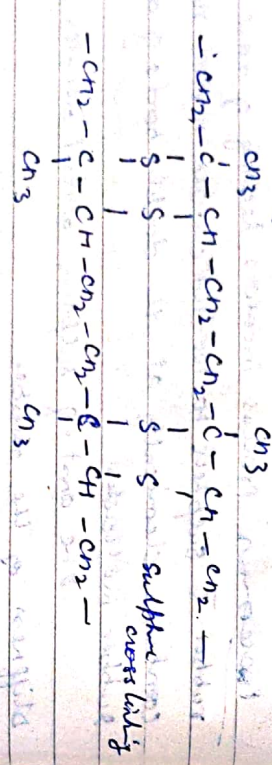 CH3 CH3
- CH2 - C - CH - CH2 - CH2 - C - CH - CH2 -
S S S S sulphur cross linking
- CH2 - C - CH - CH2 - CH2 - C - CH - CH2 -
CH3 CH3